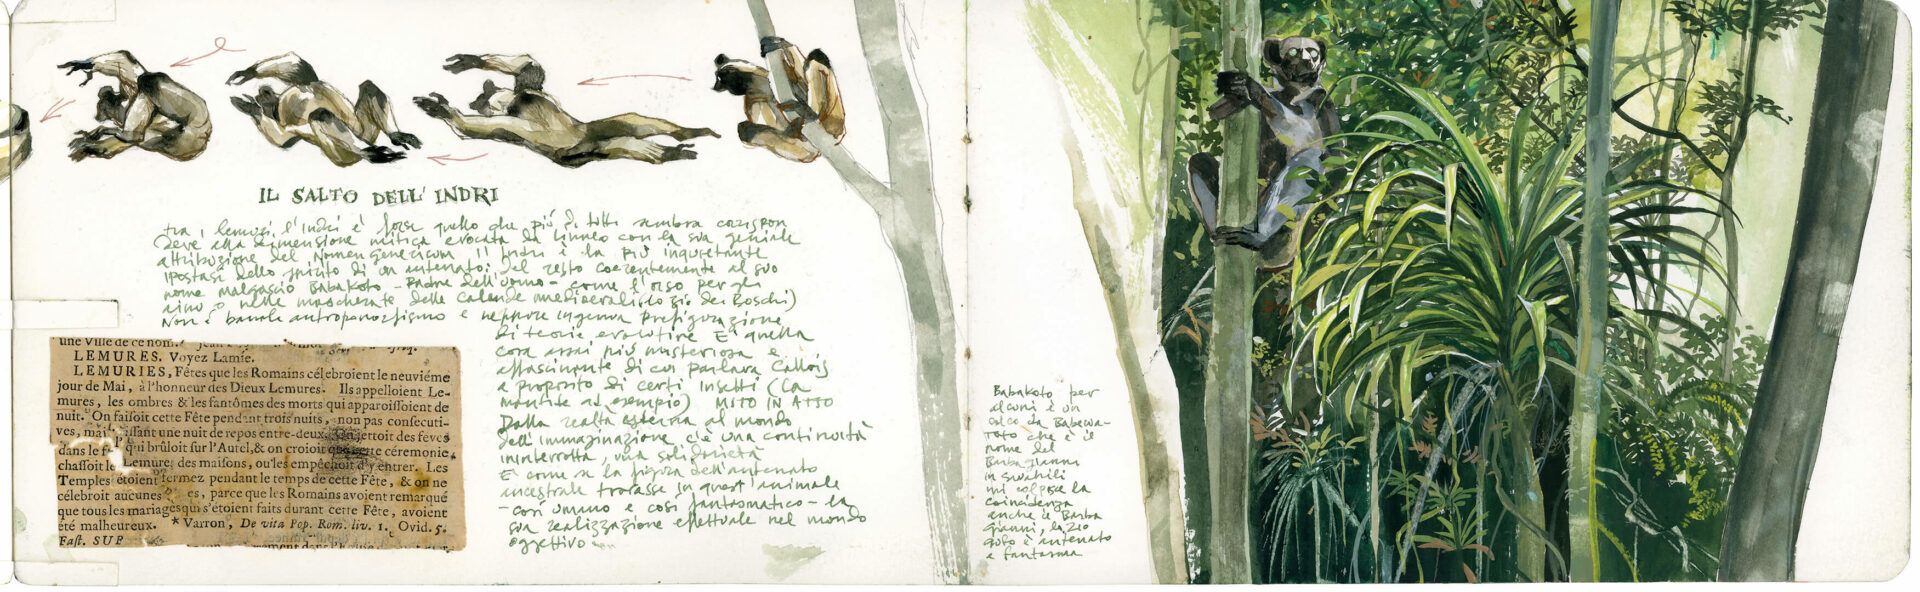 IL SALTO DELL'INDRI
tra i lemuri l'Indri è forse quello che più di tutti sembra corrispon
dere alla dimensione mitica evocata da Linneo con la sua geniale
attribuzione del Nomen Genericum Il Indri è la più inquietante
ipostasi dello spirito di un antenato: del resto coerentemente al suo
nome malgascio Babakoto - Padre dell'uomo - come l'orso per gli
ainu o nelle mascherate delle Calende medioevali (lo zio dei Boschi)
Non è banale antropomorfismo e neppure ingenua Prefigurazione
di teorie evolutive E' quella
cosa assai più misteriosa e
affascinante di cui parlava Caillois
a proposito di certi Insetti (La
mantide ad esempio) MITO IN ATTO
Dalla realtà esterna al mondo
dell'immaginazione c'è una continuità
ininterrotta, una solidarietà
E' come se la figura dell'antenato
ancestrale trovasse in quest'animale
- così umano e così fantasmatico - la
sua realizzazione effettuale nel mondo
oggettivo
une Ville de ce nom.
LEMURES. Voyez Lamie.
LEMURIES, Fêtes que les Romains célebroient le neuviéme
jour de Mai, à l'honneur des Dieux Lemures. Ils appelloient Le-
mures, les ombres & les fantômes des morts qui apparoissoient de
nuit. On faisoit cette Fête pendant trois nuits, non pas consecuti-
ves, mai issant une nuit de repos entre-deux. jettoit des feves
dans le f qui brûloit sur l'Autel, & on croioit que cette céremonie
chassoit le Lemure, des maisons, ou les empêchoit d'y entrer. Les
Temples étoient fermez pendant le temps de cette Fête, & on ne
célebroit aucunes es, parce que les Romains avoient remarqué
que tous les mariages qui s'étoient faits durant cette Fête, avoient
été malheureux. * Varron, De vita Pop. Rom. liv. 1. Ovid. 5.
Fast. SUP
Babakoto per
alcuni è un
calco da Babewa-
toto che è il
nome del
Barbagianni
in swahili
mi colpisce la
coincidenza
anche il Barba
gianni, lo zio
gufo è antenato
e fantasma